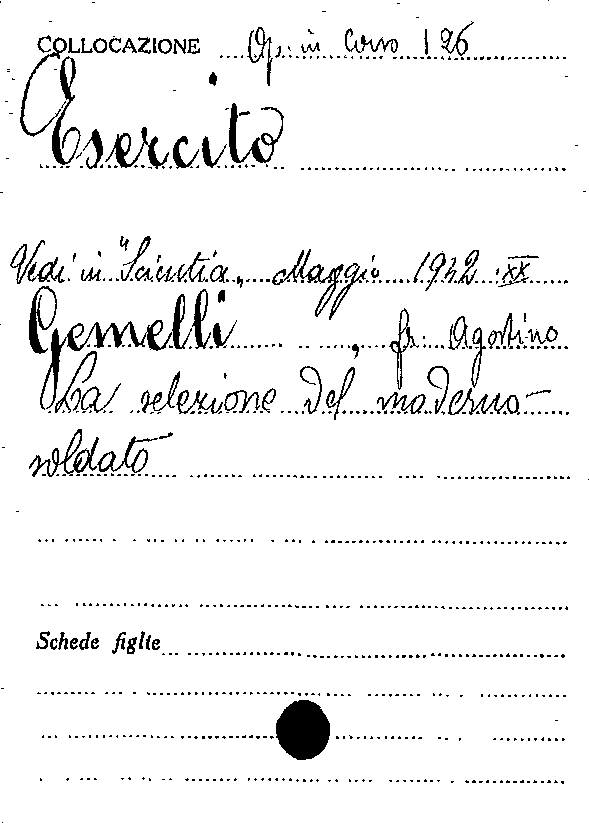 COLLOCAZIONE Op. in Corso 126
Esercito
Vedi in "Scientia" Maggio 1942 XX
Gemelli , fr. Agostino
La selezione del moderno
soldato
Schede figlie